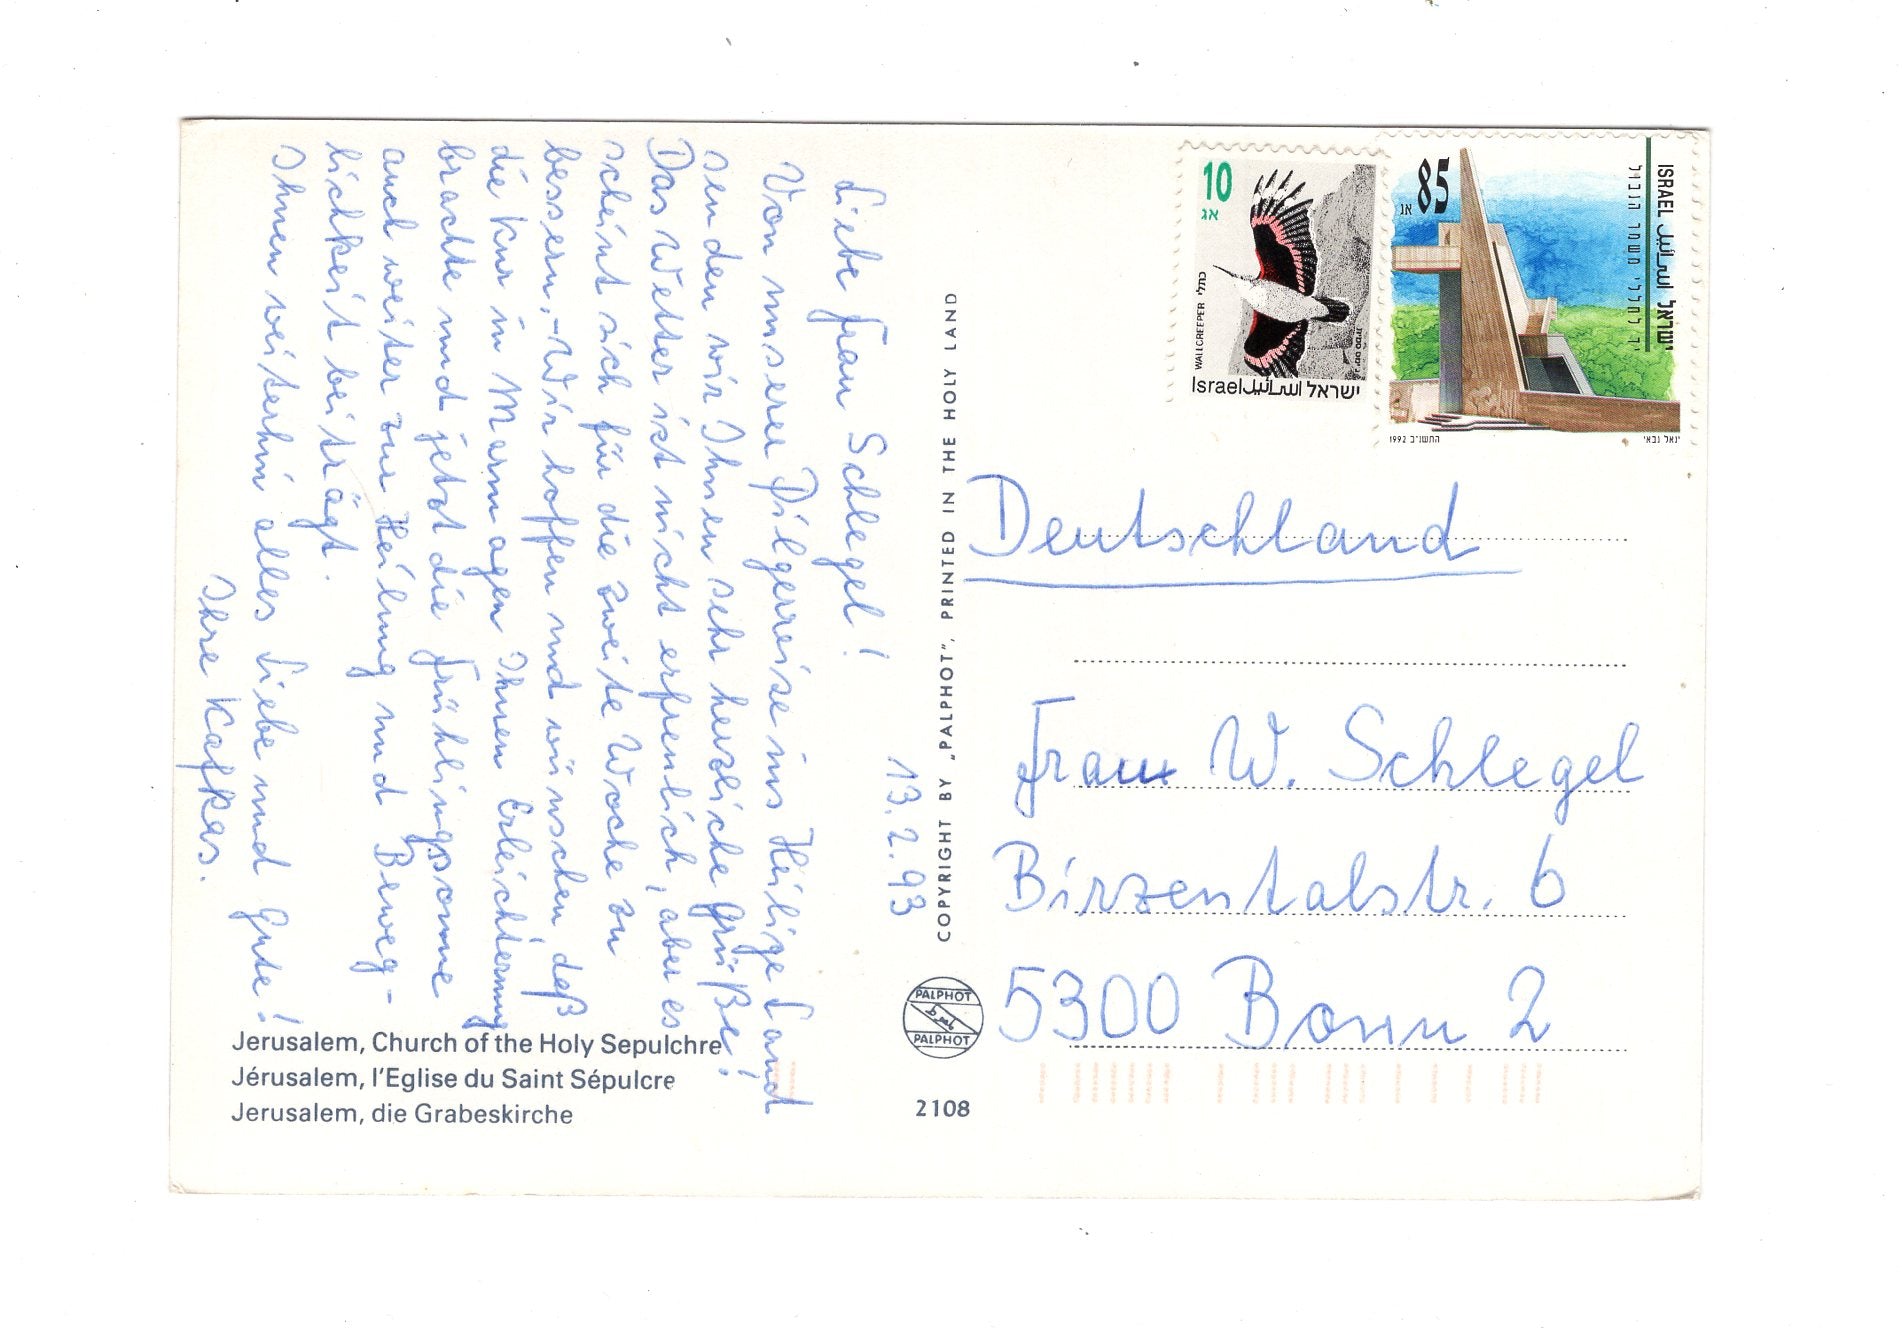 13.2.93
Liebe Frau Schlegel!
Von unserer Pilgerreise ins Heilige Land
senden wir Ihnen sehr herzliche Grüße!
Das Wetter ist nicht erfreulich, aber es
scheint sich für die zweite Woche zu
bessern, - Wir hoffen und wünschen, daß
die Kur in Marmagen Ihnen Erleichterung
brachte und jetzt die Frühlingssonne
auch weiter zur Heilung und Beweg-
lichkeit beiträgt.
Ihnen weiterhin alles Liebe und Gute!
Ihre Kafkas.
Jerusalem, Church of the Holy Sepulchre
Jérusalem, l'Eglise du Saint Sépulcre
Jerusalem, die Grabeskirche
COPYRIGHT BY „PALPHOT", PRINTED IN THE HOLY LAND
PALPHOT
PALPHOT
2108
10
אג
WALLCREEPER כותלי
Israel اسرائيل ישראל
85
אג
ISRAEL اسرائيل ישראל
יד לחללי משמר הגבול
1992 התשנ"ב
יגאל גבאי
Deutschland
Frau W. Schlegel
Birzentalstr. 6
5300 Bonn 2